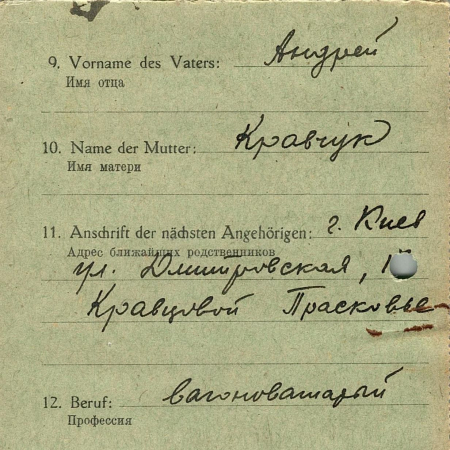 9. Vorname des Vaters: Андрей
Имя отца
10. Name der Mutter: Кравчук
Имя матери
11. Anschrift der nächsten Angehörigen: г. Киев
Адрес ближайших родственников
ул. Дмитровская,
Кравцовой Прасковье
12. Beruf: вагоноватарый
Профессия